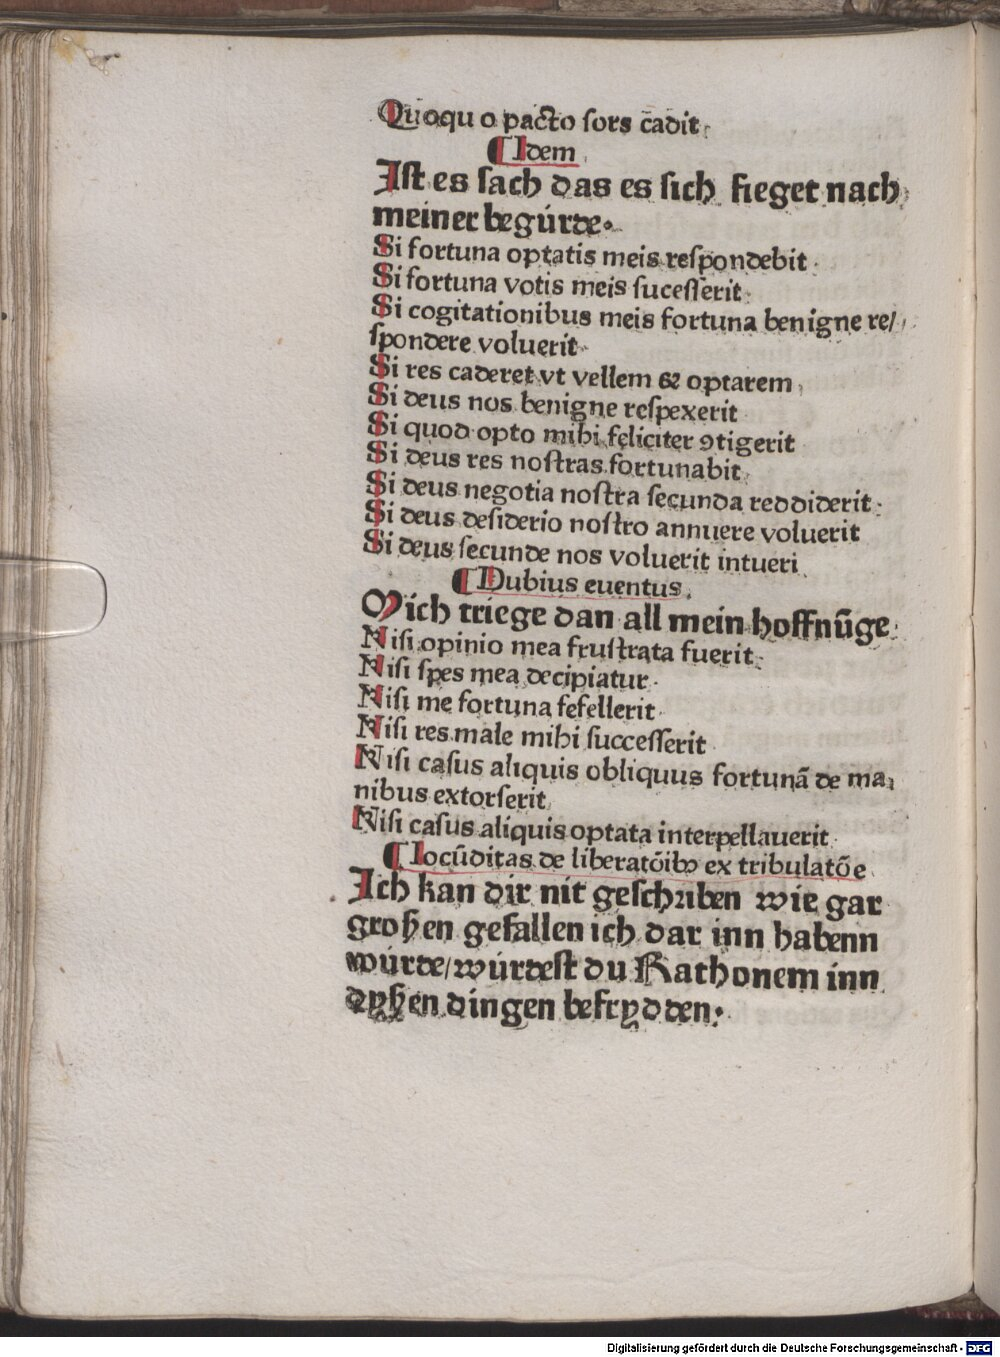 Quoqu o pacto sors cadit·
¶ Idem
Ist es sach das es sich fieget nach
meiner begúrde·
Si fortuna optatis meis respondebit·
Si fortuna votis meis sucesserit·
Si cogitationibus meis fortuna benigne re/
spondere voluerit·
Si res caderet vt vellem & optarem,
Si deus nos benigne respexerit
Si quod opto mihi feliciter ꝯtigerit
Si deus res nostras fortunabit·
Si deus negotia nostra secunda reddiderit·
Si deus desiderio nostro annuere voluerit
Si deus secunde nos voluerit intueri
¶ Dubius euentus·
Mich triege dan all mein hoffnũge·
Nisi opinio mea frustrata fuerit·
Nisi spes mea decipiatur·
Nisi me fortuna fefellerit·
Nisi res male mihi successerit
Nisi casus aliquis obliquus fortunã de ma
nibus extorserit
Nisi casus aliquis optata interpellauerit·
¶ Iocũditas de liberatõibꝰ ex tribulatõe
Ich kan dir nit geschriben wie gar
großen gefallen ich dar inn habenn
wúrde/wúrdest du Rathonem inn
dyßen dingen befrydden·
Digitalisierung gefördert durch die Deutsche Forschungsgemeinschaft - DFG